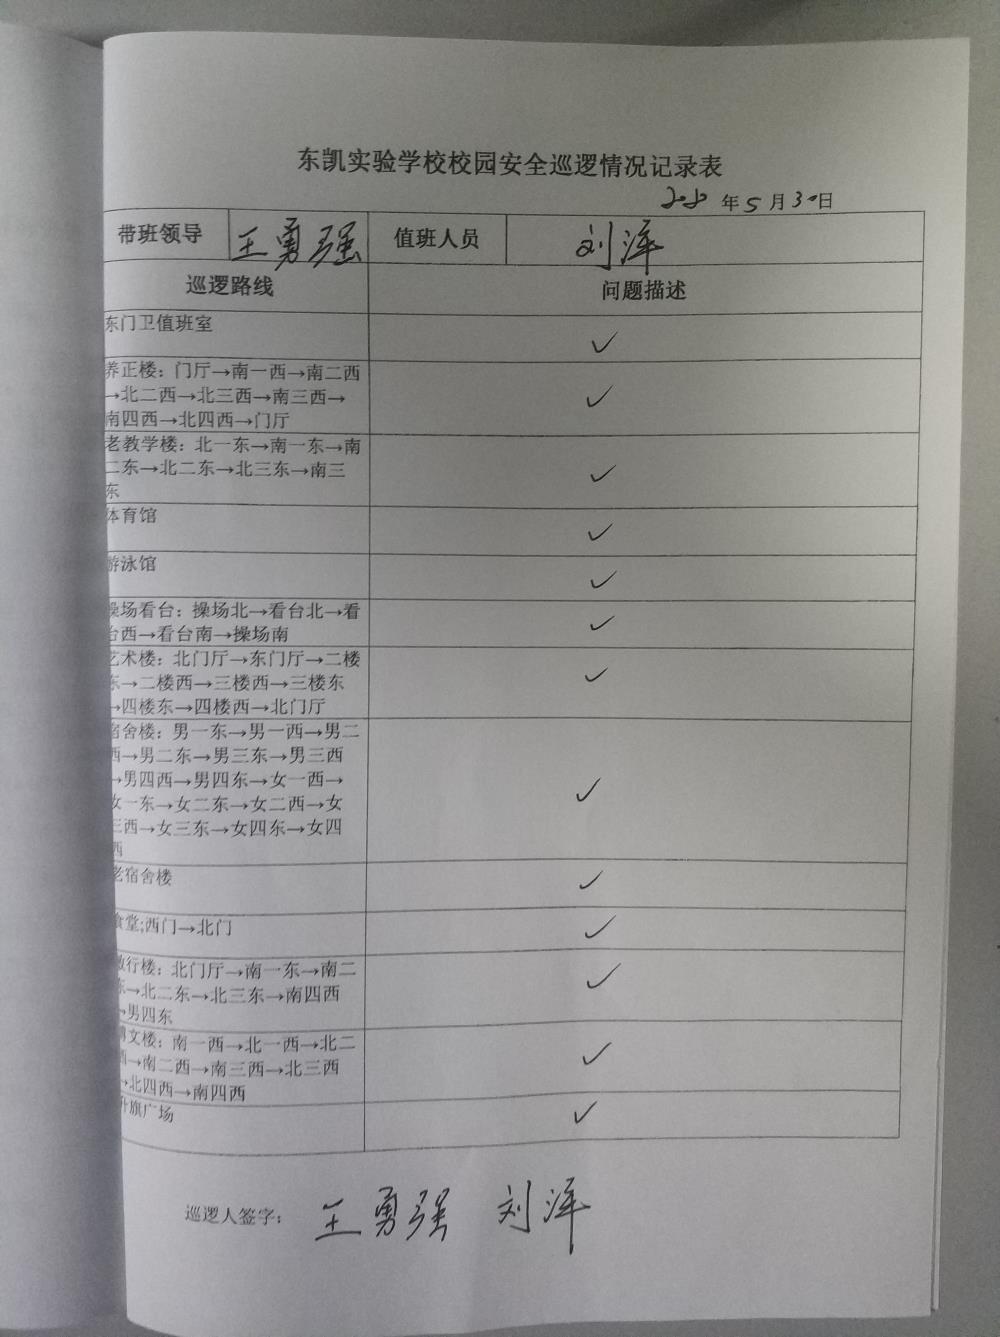 东凯实验学校校园安全巡逻情况记录表
年5月30日
带班领导 王勇强 值班人员 刘洋
巡逻路线 问题描述
东门卫值班室 ✓
养正楼：门厅→南一西→南二西 ✓
→北二西→北三西→南三西→
南四西→北四西→门厅
老教学楼：北一东→南一东→南 ✓
二东→北二东→北三东→南三
东
体育馆 ✓
游泳馆 ✓
操场看台：操场北→看台北→看 ✓
台西→看台南→操场南
艺术楼：北门厅→东门厅→二楼 ✓
东→二楼西→三楼西→三楼东
→四楼东→四楼西→北门厅
宿舍楼：男一东→男一西→男二 ✓
西→男二东→男三东→男三西
→男四西→男四东→女一西→
女一东→女二东→女二西→女
三西→女三东→女四东→女四
西
老宿舍楼 ✓
食堂;西门→北门 ✓
行楼：北门厅→南一东→南二 ✓
东→北二东→北三东→南四西
→男四东
文楼：南一西→北一西→北二 ✓
西→南二西→南三西→北三西
→北四西→南四西
升旗广场 ✓
巡逻人签字： 王勇强 刘洋